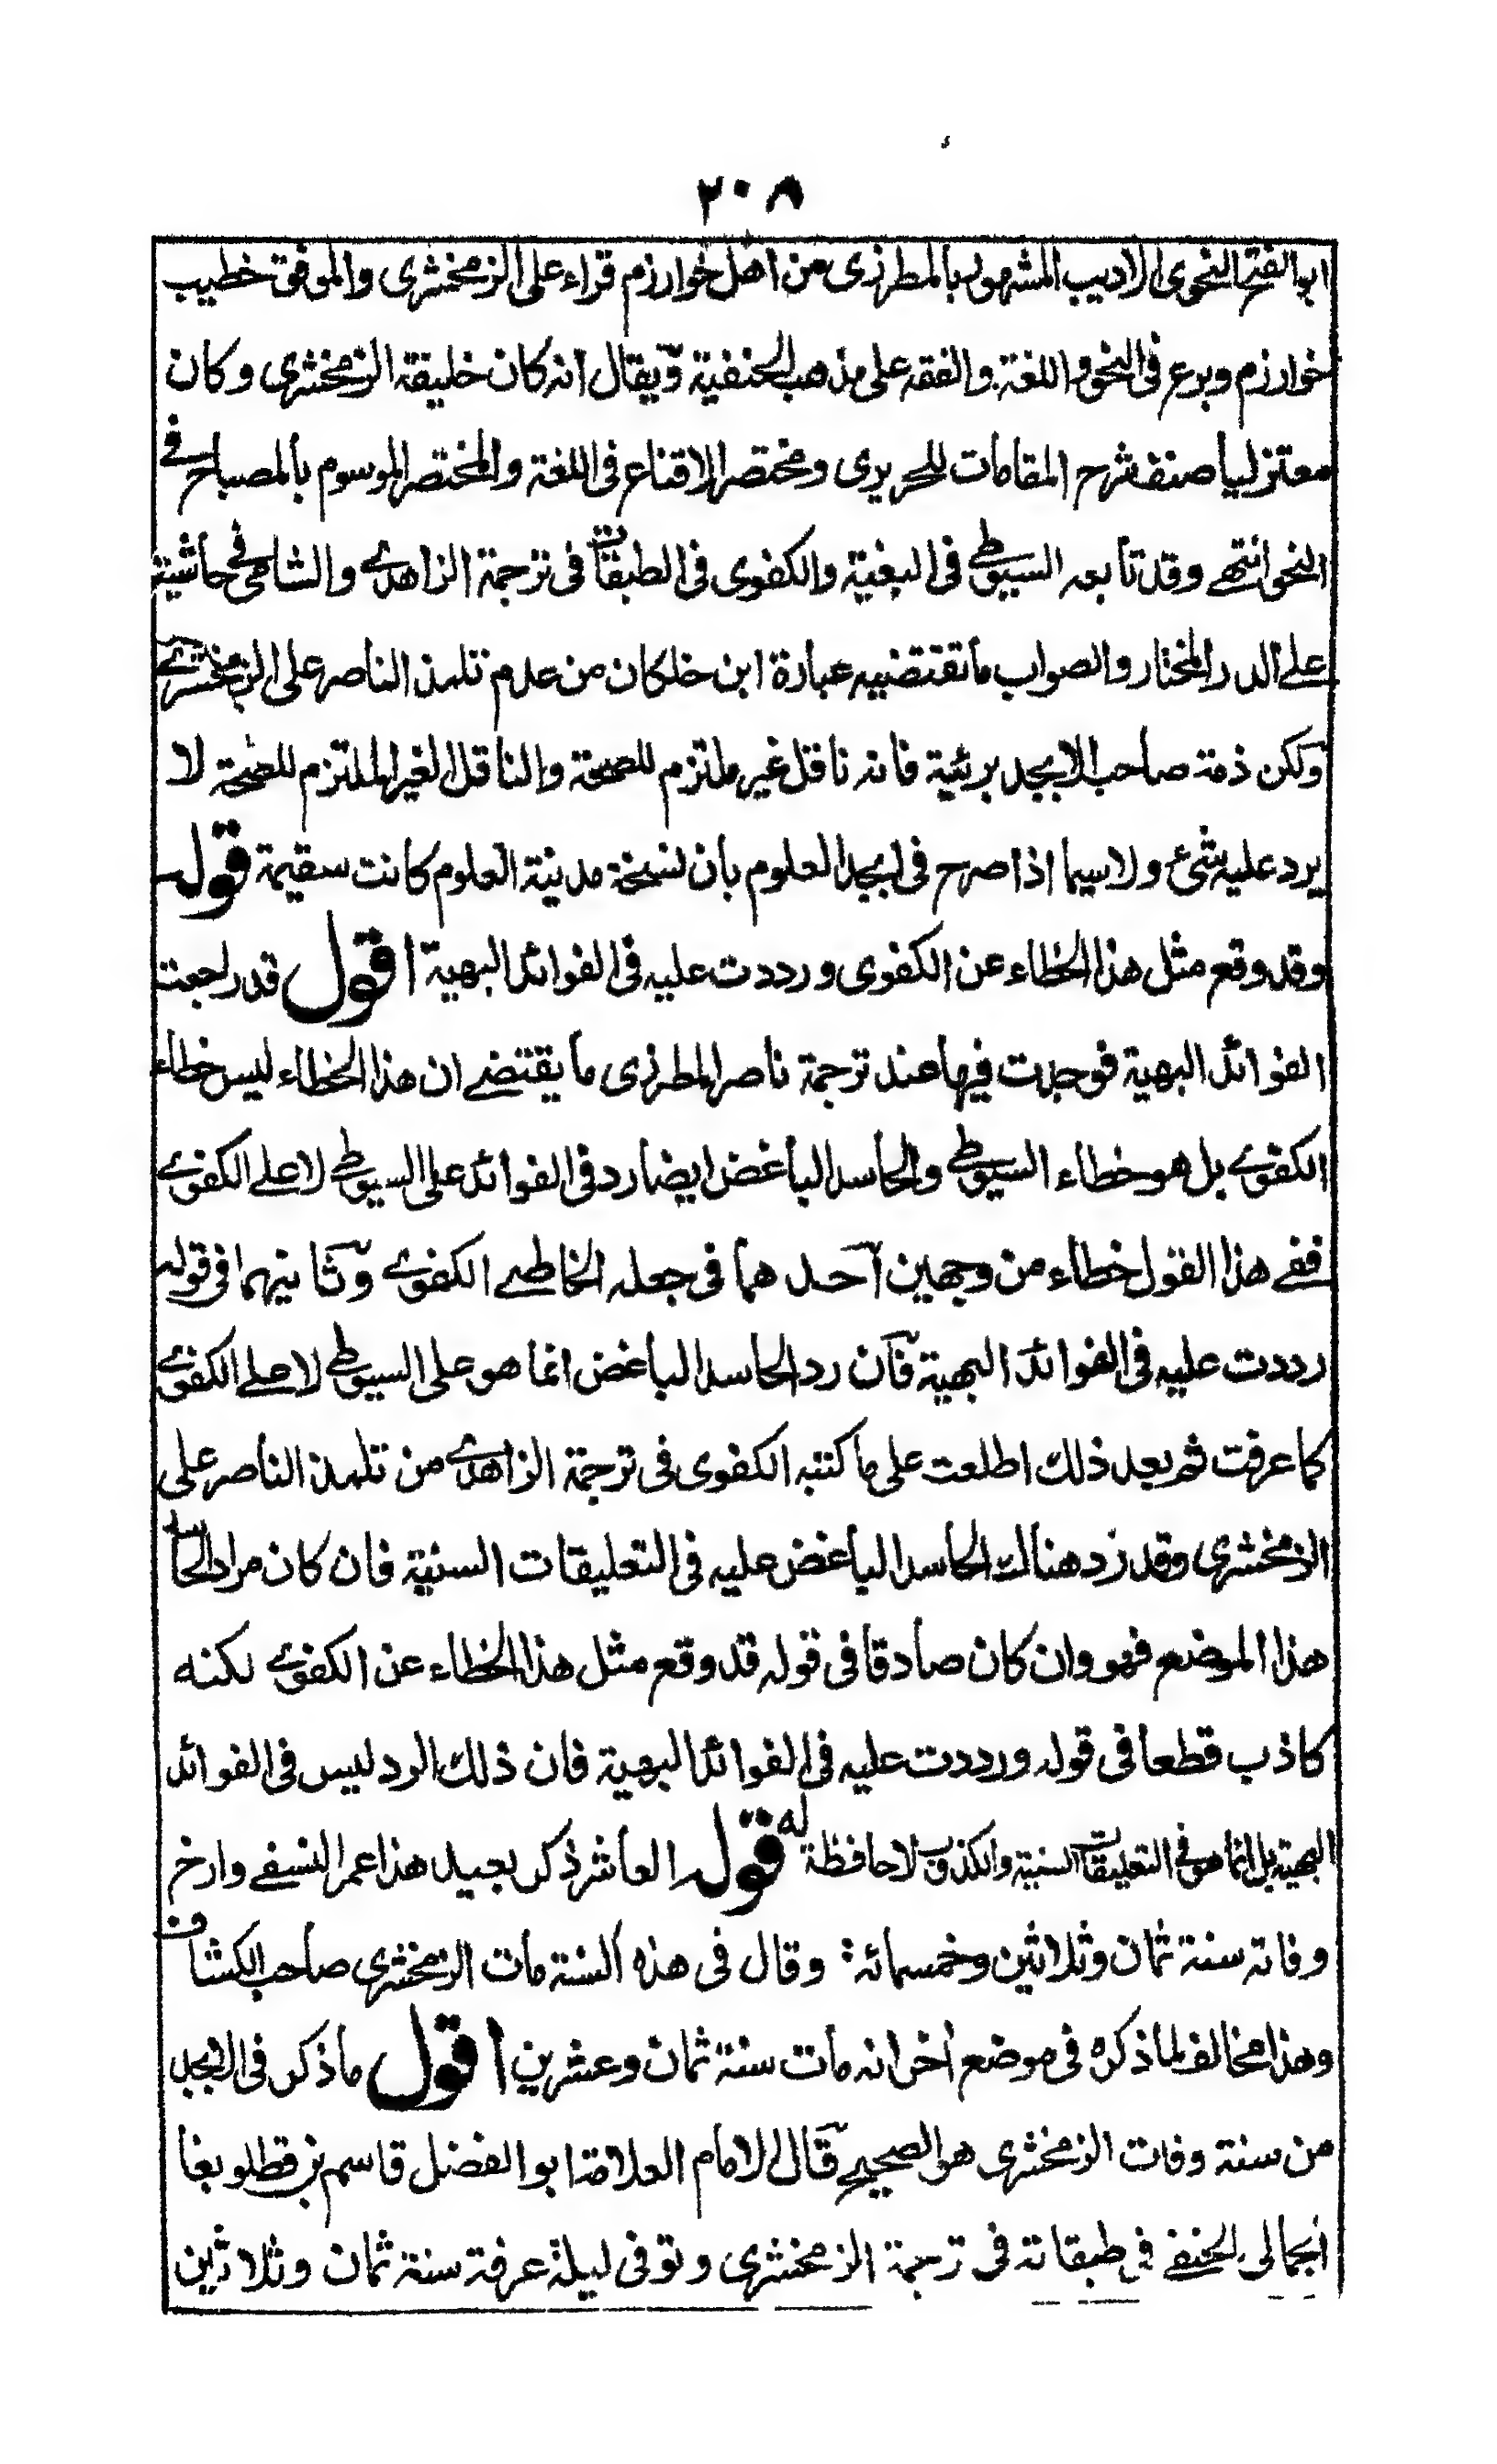 ٢٠٨
ابو الفتح النحوى الاديب المشهور بالمطرزى من اهل خوارزم قراء على الزمخشرى والموفق خطيب
خوارزم وبرع فى النحو واللغة والفقه على مذهب الحنفية ويقال انه كان خليفة الزمخشرى وكان
معتزليا صنف شرح المقامات للحريرى ومختصر الاقناع فى اللغة والمختصر الموسوم بالمصباح فے
النحو انتهے وقد تابعه السيوطے فى البغية والكفوى فى الطبقات فى ترجمة الزاهدے والشامى فى حاشيته
علے الدر المختار والصواب ما تقتضيه عبارة ابن خلكان من عدم تلمذ الناصر على الزمخشرے
ولكن ذمة صاحب الابجد برئية فانه ناقل غير ملتزم للصحة والناقل الغير الملتزم للصحة لا
يرد عليه شئ ولا سيما اذا صرح فى ابجد العلوم بان نسخة مدينة العلوم كانت سقيمة قوله
وقد وقع مثل هذا الخطاء عن الكفوى ورددت عليه فى الفوائد البهية اقول قد راجعت
الفوائد البهية فوجدت فيها عند ترجمة ناصر المطرزى ما يقتضے ان هذا الخطاء ليس خطاء
الكفوے بل هو خطاء السيوطے والحاسد الباغض ايضا رد فى الفوائد على السيوطے لا علے الكفوے
ففے هذا القول خطاء من وجهين احدهما فى جعله الخاطے الكفوے وثانيهما فى قوله
رددت عليه فى الفوائد البهية فان رد الحاسد الباغض انما هو على السيوطے لا علے الكفوے
كما عرفت ثم بعد ذلك اطلعت على ما كتبه الكفوى فى ترجمة الزاهدے من تلمذ الناصر على
الزمخشرى وقد رد هنالك الحاسد الباغض عليه فى التعليقات السنية فان كان مراد الحاسد
هذا الموضع فهو وان كان صادقا فى قوله قد وقع مثل هذا الخطاء عن الكفوے لكنه
كاذب قطعا فى قوله ورددت عليه فى الفوائد البهية فان ذلك الرد ليس فى الفوائد
البهية بل انما هو فى التعليقات السنية والكذوب لا حافظة له قوله العاشر ذكر بعيد هذا عمر النسفے وارخ
وفاته سنة ثمان وثلاثين وخمسمائة وقال فى هذه السنة مات الزمخشرى صاحب الكشاف
وهذا مخالف لما ذكره فى موضع اخر انه مات سنة ثمان وعشرين اقول ما ذكر فى الابجد
من سنة وفات الزمخشرى هو الصحيح قال الامام العلامة ابو الفضل قاسم بن قطلوبغا
الجمالى الحنفے فى طبقاته فى ترجمة الزمخشرى وتوفى ليلة عرفة سنة ثمان وثلاثين